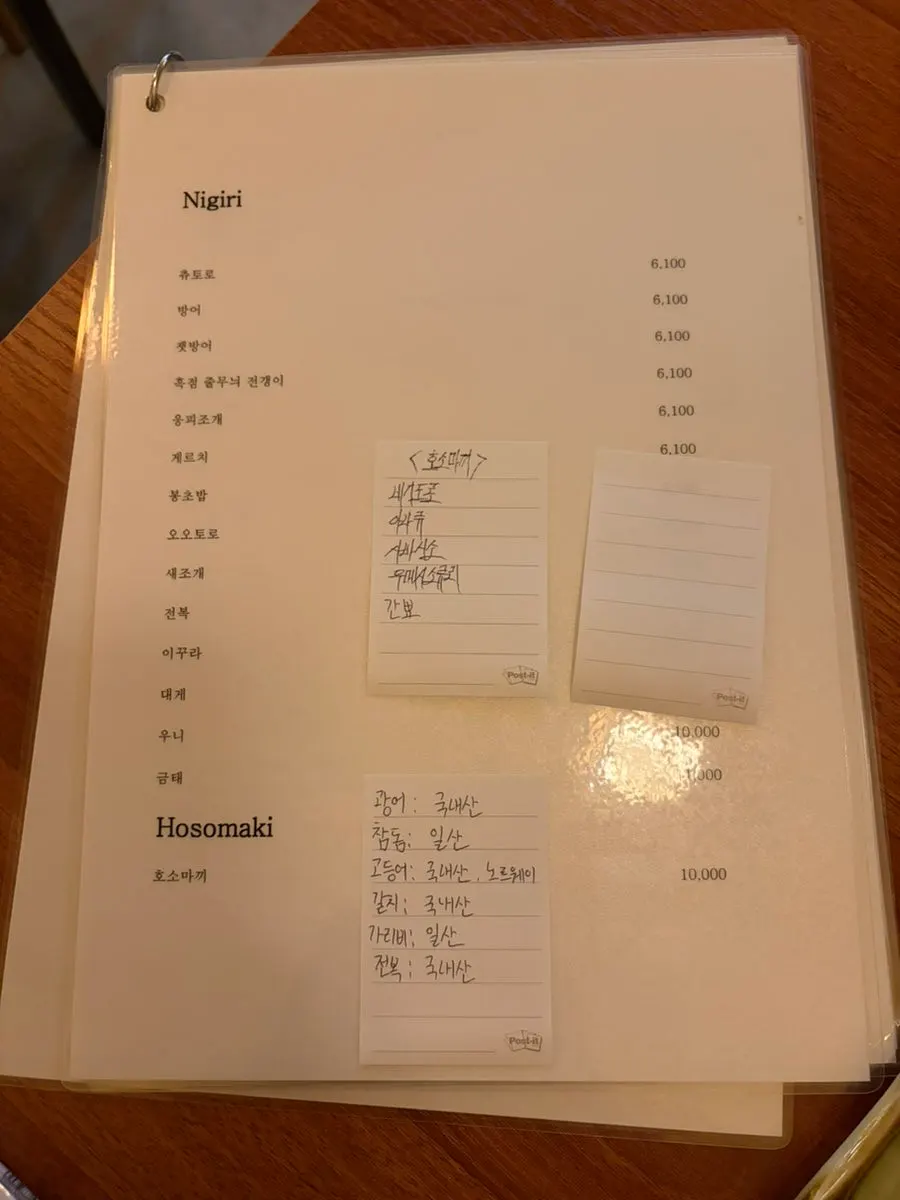 Nigiri
츄토로 6,100
방어 6,100
잿방어 6,100
흑점 줄무늬 전갱이 6,100
웅피조개 6,100
게르치 6,100
봉초밥
오오토로
새조개
전복
이꾸라
대게
우니 10,000
금태 1,000
Hosomaki
호소마끼 10,000
<호소마끼>
네기도로
사바십소
간뾰
Post-it
Post-it
광어 : 국내산
참돔 : 일산
고등어 : 국내산 , 노르웨이
갈치 : 국내산
가리비 : 일산
전복 : 국내산
Post-it